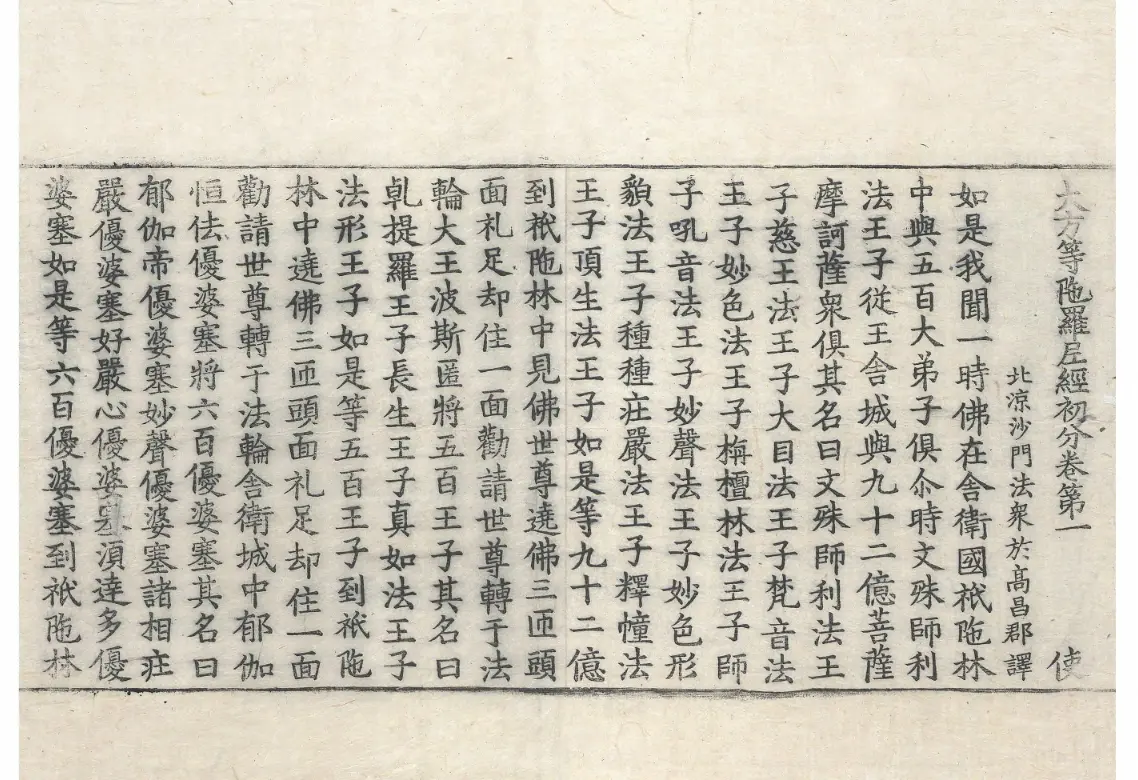 大方等陁羅尼經初分卷第一 使
北涼沙門法衆於高昌郡譯
如是我聞一時佛在舍衛國祇陁林
中與五百大弟子俱尒時文殊師利
法王子従王舍城與九十二億菩薩
摩訶薩衆俱其名曰文殊師利法王
子慈王法王子大目法王子梵音法
王子妙色法王子栴檀林法王子師
子吼音法王子妙聲法王子妙色形
貌法王子種種庄嚴法王子釋幢法
王子頂生法王子如是等九十二億
到祇陁林中見佛世尊遶佛三匝頭
面礼足却住一面勸請世尊轉于法
輪大王波斯匿將五百王子其名曰
乹提羅王子長生王子真如法王子
法形王子如是等五百王子到祇陁
林中遶佛三匝頭面礼足却住一面
勸請世尊轉于法輪舍衛城中郁伽
恒佉優婆塞將六百優婆塞其名曰
郁伽帝優婆塞妙聲優婆塞諸相庄
嚴優婆塞好嚴心優婆塞湏達多優
婆塞如是等六百優婆塞到祇陁林